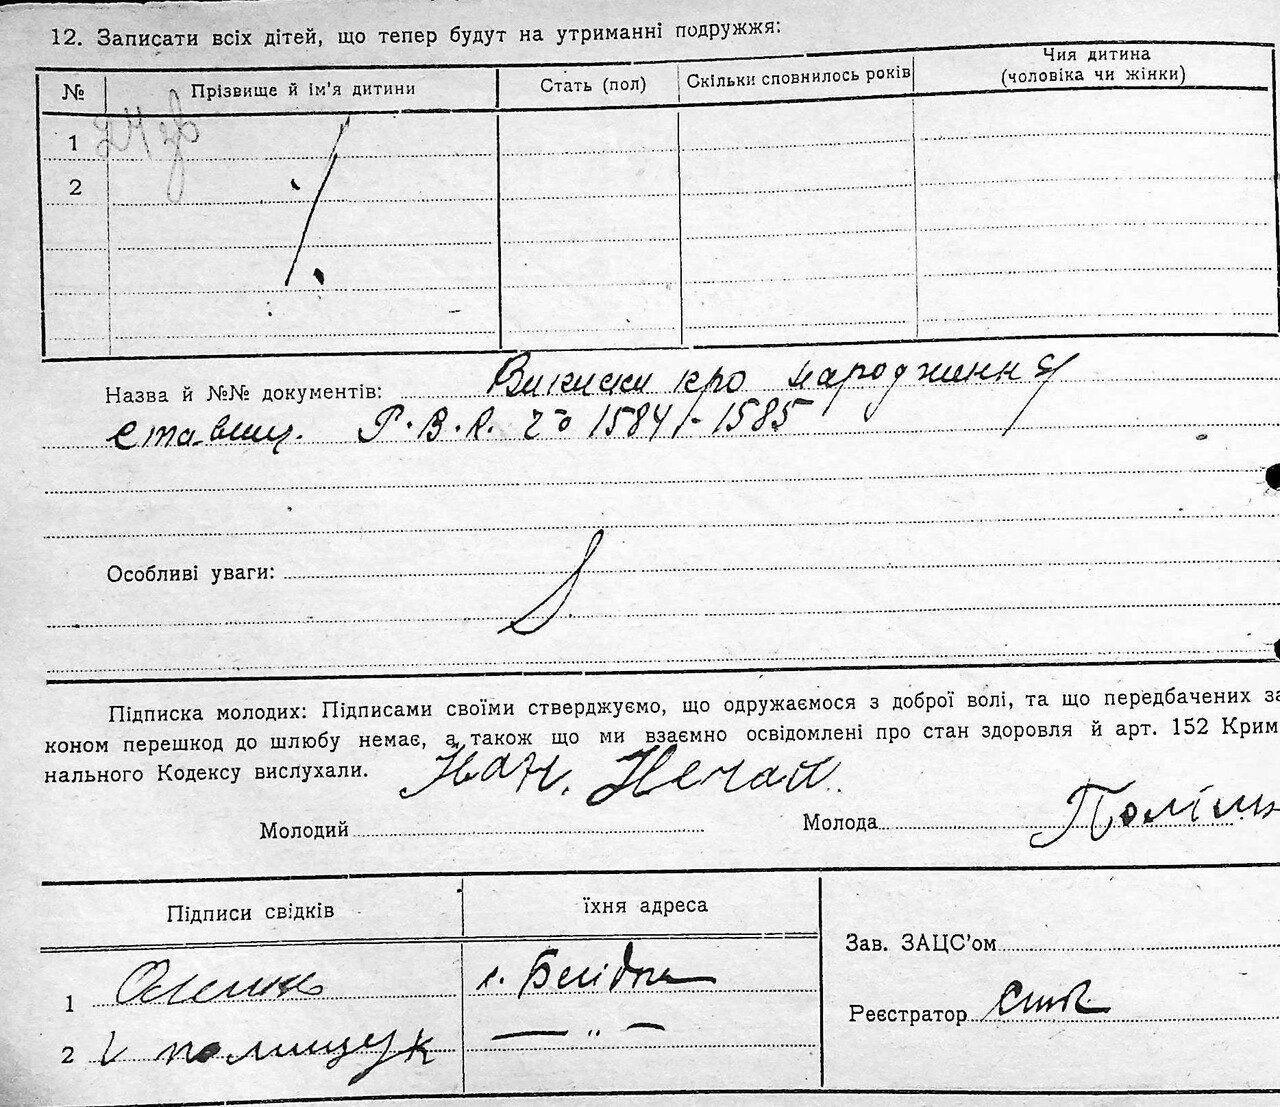 12. Записати всіх дітей, що тепер будут на утриманні подружжя:
№ Прізвище й ім'я дитини Стать (пол) Скільки сповнилось років Чия дитина (чоловіка чи жінки)
1
2
Назва й №№ документів: Виписки про народження
Р.В.К. 1584-1585
Особливі уваги:
Підписка молодих: Підписами своїми стверджуємо, що одружаємося з доброї волі, та що передбачених за
коном перешкод до шлюбу немає, а також що ми взаємно освідомлені про стан здоровля й арт. 152 Крим
нального Кодексу вислухали.
Нечай
Молодий Молода
Підписи свідків їхня адреса
Зав. ЗАЦС'ом
1
Реєстратор
2 Полищук — „ —